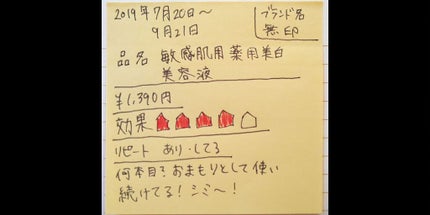 2019年7月20日〜
9月21日
ブランド名
無印
品名 敏感肌用薬用美白
美容液
¥1,390円
効果
リピート あり・してる
何本目?おまもりとして使い
続けてる!シミ〜!